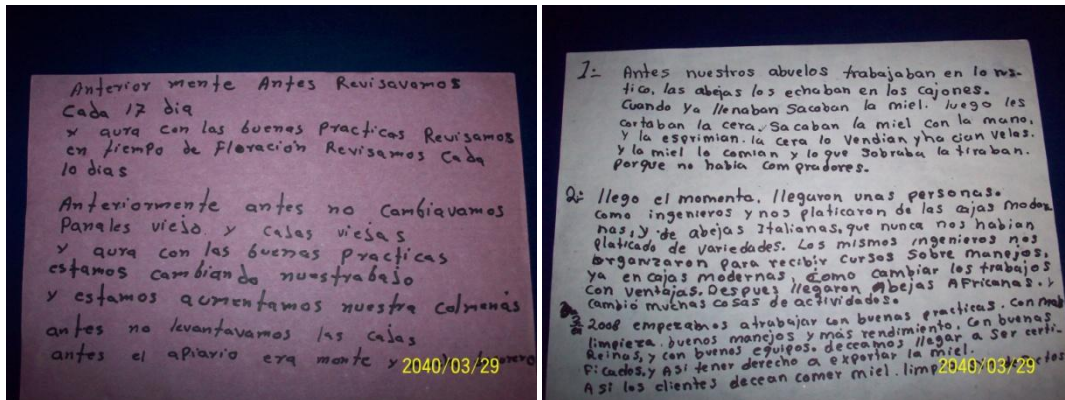 Anterior mente Antes Revisavamos
Cada 17 dia
y aura con las buenas Practicas Revisamos
en tiempo de Floración Revisamos Cada
10 dias
Anteriormente antes no Cambiavamos
Panales viejo y Cajas viejas
y aura con las buenas Practicas
estamos Cambiando nuestrabajo
y estamos aumentamos nuestra Colmenas
antes no levantavamos las Cajas
antes el apiario era monte y
2040/03/29
1:- Antes nuestros abuelos trabajaban en lo rus-
tico, las abejas los echaban en los cajones.
Cuando Ya llenaban Sacaban la miel. luego les
cortaban la cera. Sacaban la miel con la mano,
y la esprimian. la cera lo Vendian y ha cian velas.
y la miel lo comian y lo que Sobraba la tiraban.
Porque no habia com pradores.
2:- llego el momento, llegaron unas personas.
como ingenieros y nos platicaron de las cajas moder
nas, y de abejas Italianas, que nunca nos habian
platicado de variedades. Los mismos ingenieros nos
organzaron para recibir cursos Sobre manejos,
ya en cajas modernas, Como cambiar los trabajos
con ventajas. Despues llegaron Abejas AFricanas. y
cambió muchas cosas de actividades.
2008 empezamos a trabajar con buenas practicas. Con
limpieza. buenos manejos y más rendimiento. Con buenas
Reinas, y con buenos equipos. deceamos llegar a Ser certi-
Ficados, y Asi tener derecho a exportar la miel.
Asi los clientes decean comer miel. limp
2040/03/29